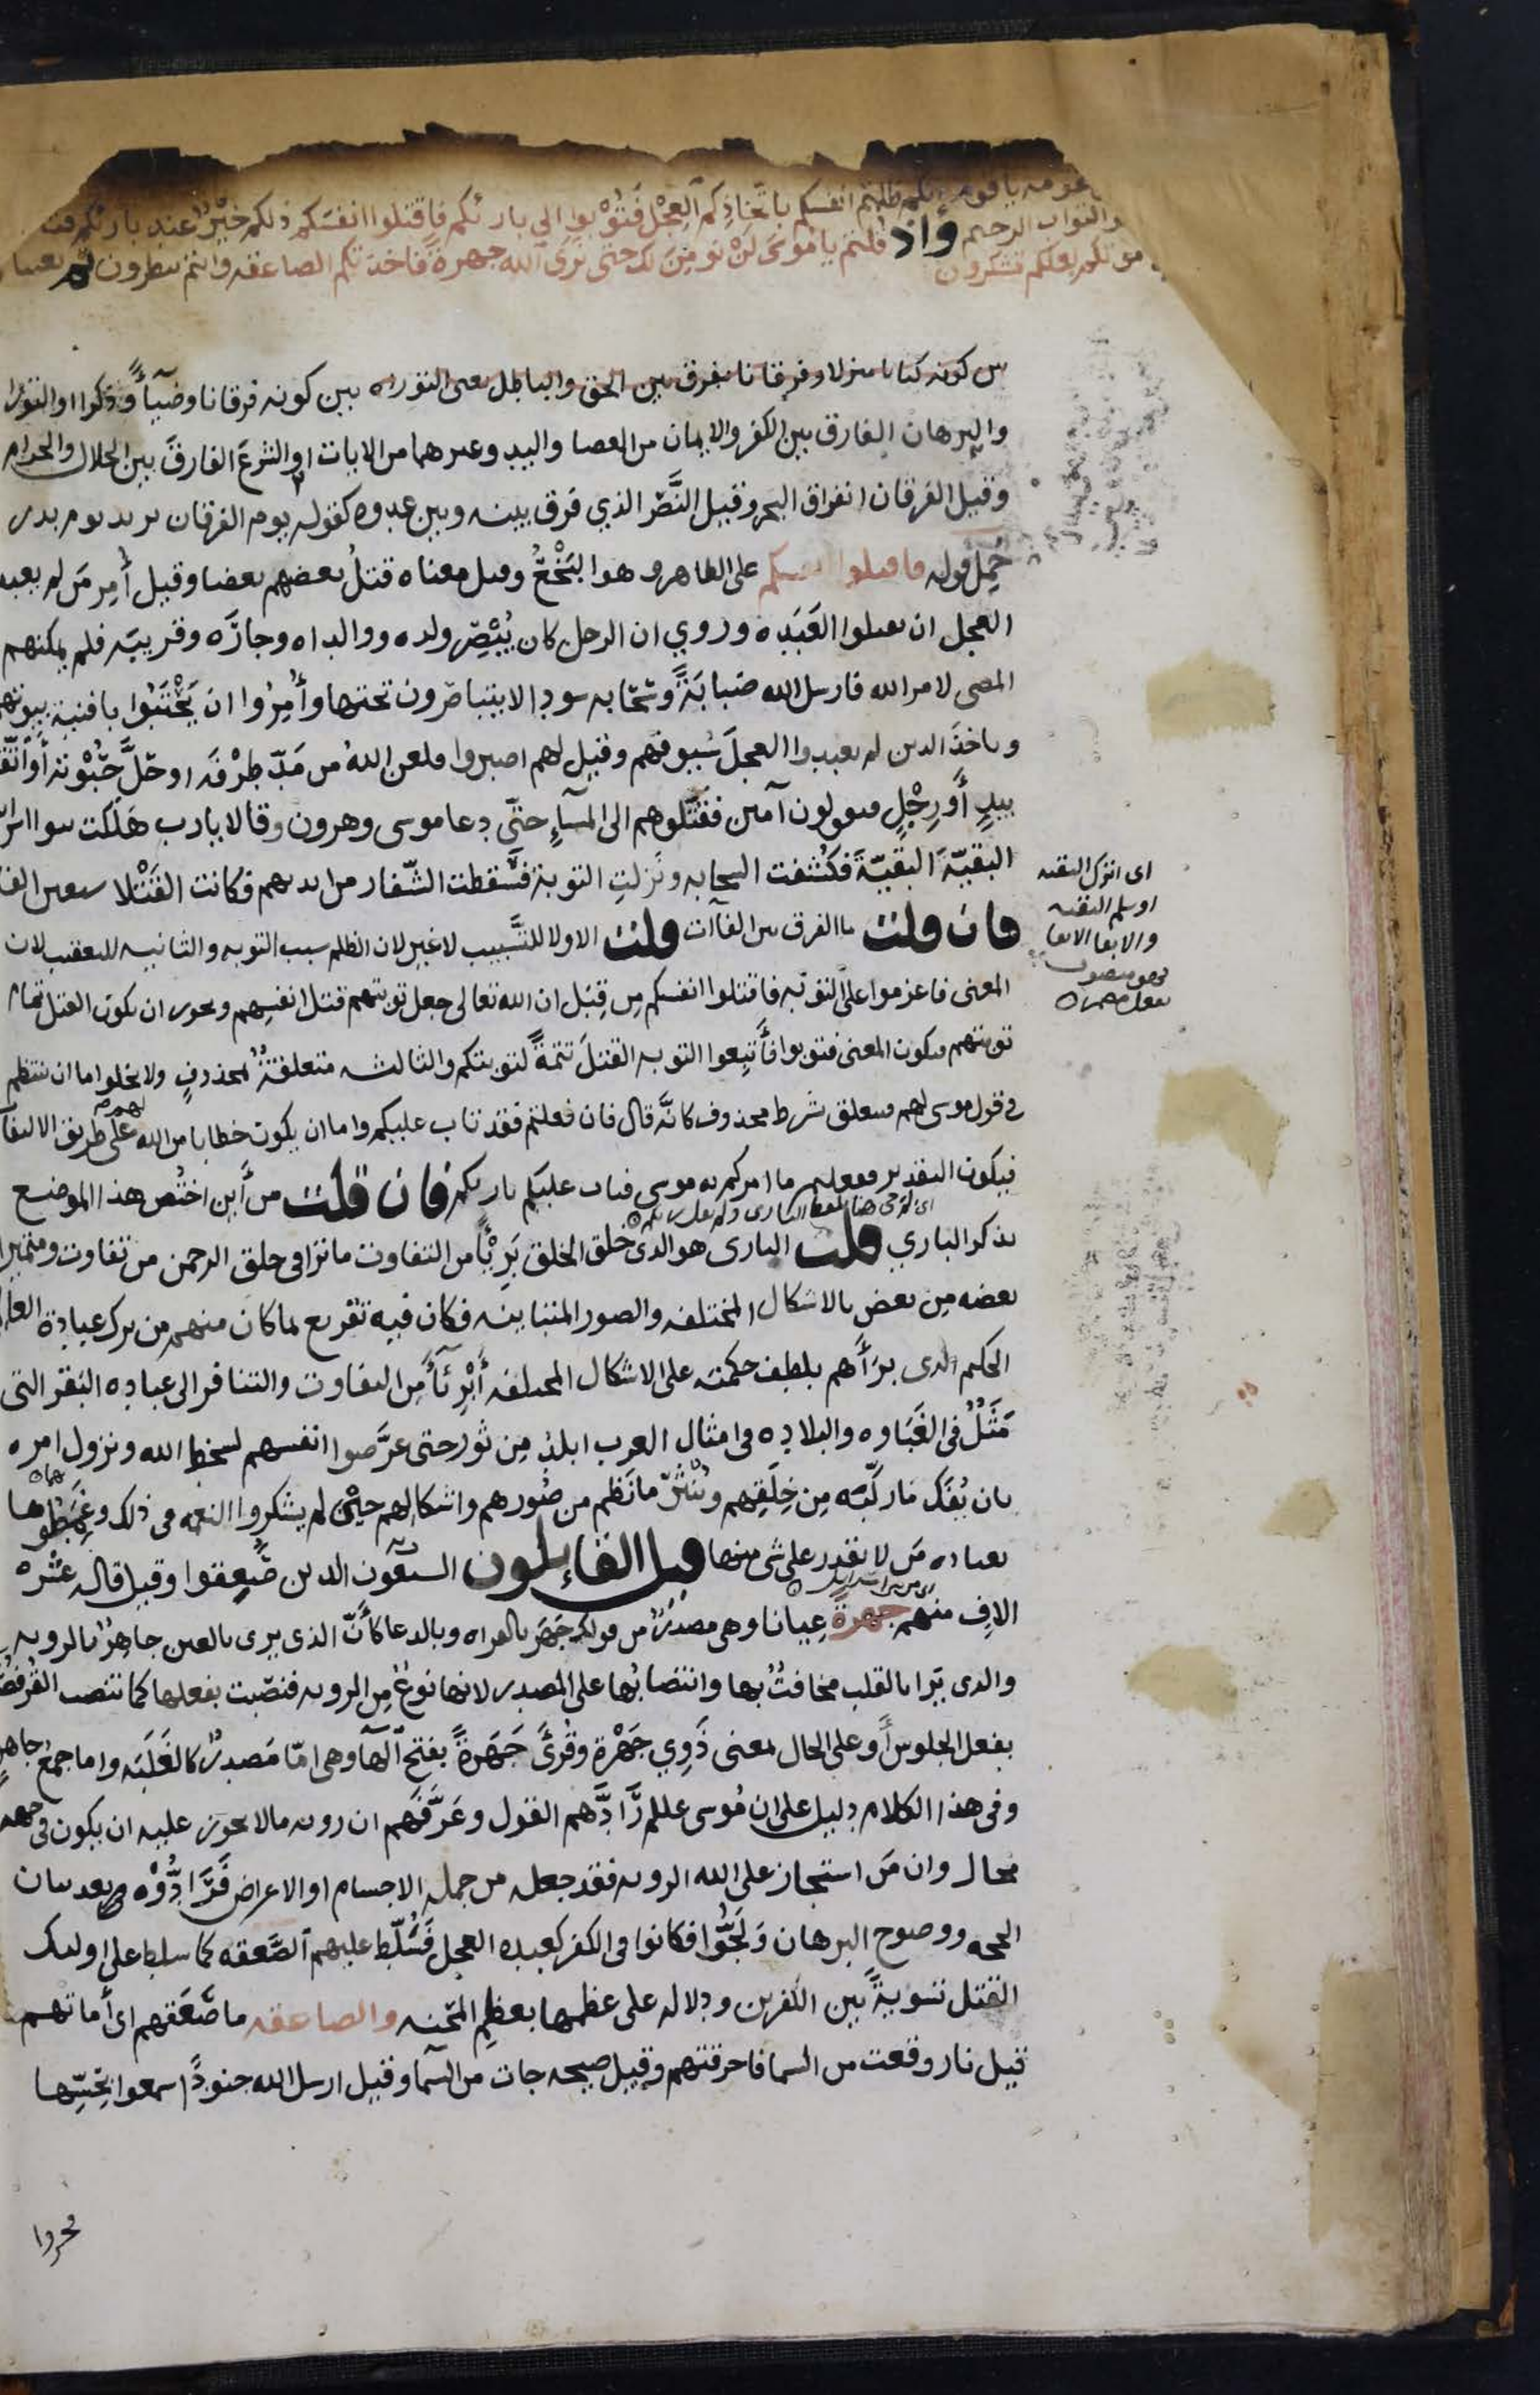 يا قوم انكم ظلمتم انفسكم باتخاذكم العجل فتوبوا الى بارئكم فاقتلوا انفسكم ذلكم خير عند بارئكم فتاب
التواب الرحيم واذ قلتم يا موسى لن نومن لك حتى نرى الله جهرة فاخذتكم الصاعقه وانتم تنظرون ثم بعثنا
موتكم لعلكم تشكرون
بين كونه كتابا منزلا وفرقانا يفرق بين الحق والباطل يعنى التوريه بين كونه فرقانا وضيآً وذكرا او التوراه
والبرهان الفارق بين الكفر والايمان من العصا واليد وغيرهما من الايات او الشرع الفارق بين الحلال والحرام
وقيل الفرقان انفراق البحر وقيل النصر الذي فرق بينه وبين عدوه كقوله يوم الفرقان يريد يوم بدر
حُمِل قوله فاقتلوا انفسكم على الظاهر وهو البَخْعُ وقيل معناه قتلُ بعضهم بعضا وقيل أُمِر مَن لم يعبد
العجل ان يقتلوا العَبَده وروي ان الرجل كان يُبْصِر ولده ووالداه وجارَه وقريبَه فلم يمكنهم
المضى لامر الله فارسل الله ضبابَةً وسحابه سودا لا يتباصرون تحتها وأُمِرُوا ان يَحْتَبُوا بافنية بيوتهم
وياخذَ الدين لم يعبدوا العجلَ سُيوفهم وقيل لهم اصبروا فلعن اللهُ من مَدّ طرْفَه او حَلَّ حَبْوته أو اتّقى
بيدٍ أَو رِجْلٍ فيقولون آمين فقتلوهم الى المسآءِ حتّى دعا موسى وهرون وقالا يارب هَلَكت بنوا اسرائيل
البقيّةَ البقيّةَ فكُشفت السحابه ونَزلتِ التوبة فسَّقطت الشّفار من ايديهم فكانت القَتْلا سبعين الفا
فان قلت ما الفرق بين الفآآت قلت الاولا للتَّسبيب لا غير لان الظلم سبب التوبه والثانيه للتعقيب لان
المعنى فاعزموا على التوبه فاقتلوا انفسكم مِن قِبَل ان الله تعالى جعل توبتهم قتل انفسِهم ويجوز ان يكون القتل تمام
توبتهم فيكون المعنى فتوبوا فأَتبِعوا التوبه القتلَ تتمةً لتوبتكم والثالثه متعلقةٌ بمحذوفٍ ولا يخلوا اما ان ينتظم
في قول موسى لهم فيتعلق بشرط محذوف كانَّه قال فان فعلتم فقد تاب عليكم واما ان يكون خطابا من الله لهم على طريق الالتفات
فيكون التقدير ففعلتم ما امركم به موسى فتاب عليكم بارئكم فان قلت من أَين اختُص هذا الموضع
بذكر الباري قلت البارى هو الذى خلق الخلق بَرِيًّا من التفاوت ما ترا فى خلق الرحمن من تفاوت ومتميزا
بعضه مِن بعض بالاشكال المختلفه والصور المتباينه فكان فيه تقريع بما كان منهم من ترك عبادة العالم
الحكيم الذى برَأَهم بلطف حكمته على الاشكال المختلفه أَبْرِئآءَ مِن التفاوت والتنافر الى عباده البقر التى
مَثَلٌ فى الغَبَاوه والبلاده فى امثال العرب ابلدُ مِن ثور حتى عرَّضوا انفسهم لسخط الله ونزول امره
بان يُفَك مَا ركّبَه مِن خِلَقِهم وينْثرَ مَا نَظم من صُورهم واشكالهم حينَ لم يشكروا النعمه فى ذلك وغَمَطُوها
بعباده مَن لا يقدر على شى منها قيل القائلون السبعون الدين صُعِقوا وقيل قاله عشره
الافٍ منهم جهرةً عِيانا وهى مصدرٌ من قولك جَهَر بالقراه وبالدعا كأَنّ الذى يرى بالعين جاهرٌ بالرويه
والذى يَرَا بالقلب مخافتٌ بها وانتصابُها على المصدر لانها نوعٌ مِن الرويه فنصبت بفعلها كما تنصب القُرفُصا
بفعل الجلوس أَو على الحال بمعنى ذَوِي جَهْرة وقُرئَ جَهَرةً بفتح آلهآ وهى امّا مَصدرٌ كالغَلَبَه واما جمعُ جاهرٍ
وفى هذا الكلام دليل على ان مُوسى علم رَّادَّهم القول وعَرَّفَهم ان رويه مالا يجوز عليه ان يكون فى جهه
محال وان مَن استجاز على الله الرويه فقد جعله من جمله الاجسام او الاعراض فَرَادُّوْه بعد بيان
الحجه ووضوح البرهان وَلَجُّوا فكانوا فى الكفر كعبده العجل فَسُلّط عليهم الصَّعقه كما سلط على اوليك
القتل تسويةً بين الكفرين ودلاله على عظمها بعظم المحنه والصاعقه ما صَعَقهم اى أماتهم
قيل نار وقعت من السما فاحرقتهم وقيل صيحه جات من السّما وقيل ارسل الله جنودًا سمعوا بحِسِّها
اى اترك البقيه
او سلم البقيه
والابقا الابقا
فهو منصوب
بفعل مضمر
فخروا